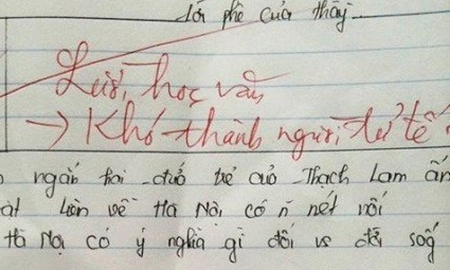 Lời phê của thầy
Lười học văn
→ Khó thành người tử tế
ngắn hai đứa trẻ của Thạch Lam
liên về Hà Nội có n nét nổi
Hà Nội có ý nghĩa gì đối vs đời sốg